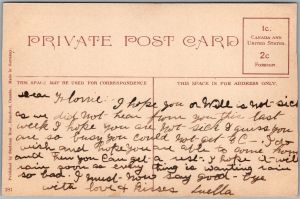 PRIVATE POST CARD
1c.
CANADA AND
UNITED STATES.
2c
FOREIGN
THIS SPACE MAY BE USED FOR CORRESPONDENCE
THIS SPACE IS FOR ADDRESS ONLY.
Dear Florrie: I hope you or Will is not sick
as we did not hear from you this last
week I hope you are not sick I guess you
are so busy you could not get I do
wish and hope you are able to come home
and then you can get a rest. I hope it will
rain soon as every thing is wanting rain
so bad. I must now say Good-Bye
with love & Kisses Luella